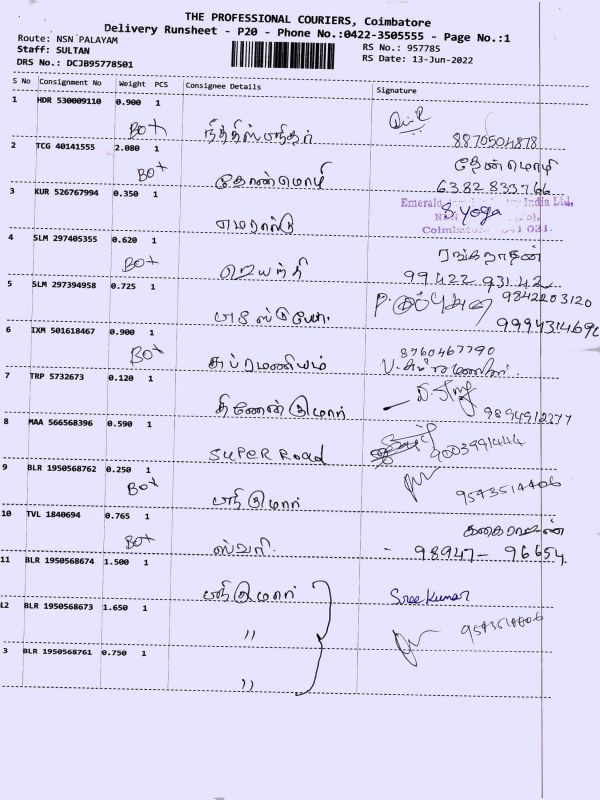 THE PROFESSIONAL COURIERS, Coimbatore
Delivery Runsheet - P20 - Phone No.:0422-3505555 - Page No.:1
Route: NSN PALAYAM
RS No.: 957785
Staff: SULTAN
RS Date: 13-Jun-2022
DRS No.: DCJB95778501
S No Consignment No Weight PCS Consignee Details Signature
1 HDR 530009110 0.900 1
Box 8870504878
2 TCG 40141555 2.080 1 தேன்மொழி
Box தேன்மொழி 6382833766
3 KUR 526767994 0.350 1 Emerald India Ltd.,
எமரால்டு S. Yoga
Coimbatore 641 031.
4 SLM 297405355 0.620 1 ரங்கநாதன்
Box ஜெயந்தி 99422 93142
5 SLM 297394958 0.725 1 9842203120
6 IXM 501618467 0.900 1 8760467790
Box சுப்ரமணியம்
7 TRP 5732673 0.120 1
தினேஷ்குமார் 9894912277
8 MAA 566568396 0.590 1
SUPER Road 9003991444
9 BLR 1950568762 0.250 1
Box ஸ்ரீகுமார் 9543514406
10 TVL 1840694 0.765 1
Box 98947-96654
11 BLR 1950568674 1.500 1
ஸ்ரீகுமார் Sreekumar
12 BLR 1950568673 1.650 1
" 9543514406
3 BLR 1950568761 0.750 1
"